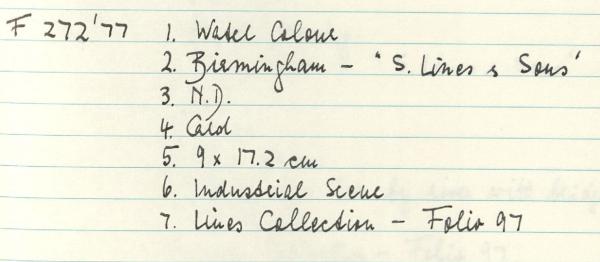 F 272'77 1. Water Colour
2. Birmingham - "S. Lines & Sons"
3. N.D.
4. Card
5. 9 x 17.2 cm
6. Industrial Scene
7. Lines Collection - Folio 97